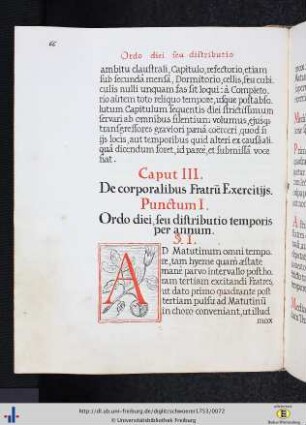 66
Ordo diei seu distributio
ambitu claustrali, Capitulo, refectorio, etiam
sub secunda mensa, Dormitorio, cellis, seu cubi,
culis nulli unquam fas sit loqui: à Completo,
rio autem toto reliquo tempore, usque post abso,
lutum Capitulum sequentis diei strictissimum
servari ab omnibus silentium volumus, ejusq;
transgressores graviori pœna coërceri, quod si
ijs locis, aut temporibus quid alteri ex causa ali,
qua dicendum foret, id parcè, et submissa voce
fiat.
Caput III.
De corporalibus Fratrū Exercitijs.
Punctum I.
Ordo diei, seu distributio temporis
per annum.
§. I.
AD Matutinum omni tempo,
re, tam hyeme quam æstate
mane parvo intervallo post ho,
ram tertiam excitandi Fratres,
ut dato primo quadrante post
tertiam pulsu ad Matutinū
in choro conveniant, ut illud
mox
http://dl.ub.uni-freiburg.de/diglit/scheuerer1753/0072
© Universitätsbibliothek Freiburg